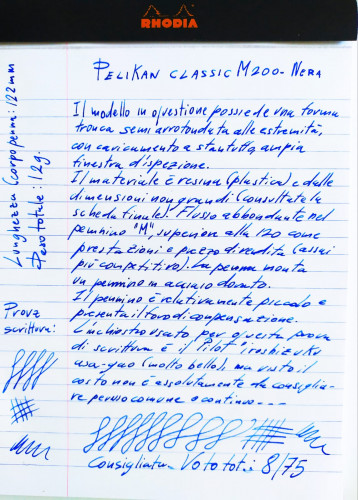 RHODIA
PELIKAN CLASSIC M200-NERA
Il modello in questione possiede una forma
tronca semi arrotondata alle estremità,
con caricamento a stantuffo, ampia
finestra d'ispezione.
Il materiale è resina (plastica) e dalle
dimensioni non grandi (consultate la
scheda finale). Flusso abbondante nel
pennino "M", superiore alla 120 come
prestazioni e prezzo di vendita (assai
più competitivo). La penna monta
un pennino in acciaio dorato.
Il pennino è relativamente piccolo e
presenta il foro di compensazione.
L'inchiostro usato per questa prova
di scrittura è il "Pilot" iroshizuku
asa-gao (molto bello), ma visto il
costo non è assolutamente da consiglia-
re per uso comune o continuo---
consigliata. Voto tot.: 8/75
Lunghezza (corpo penna): 122mm
Peso totale: 12g.
Prova
scrittura: